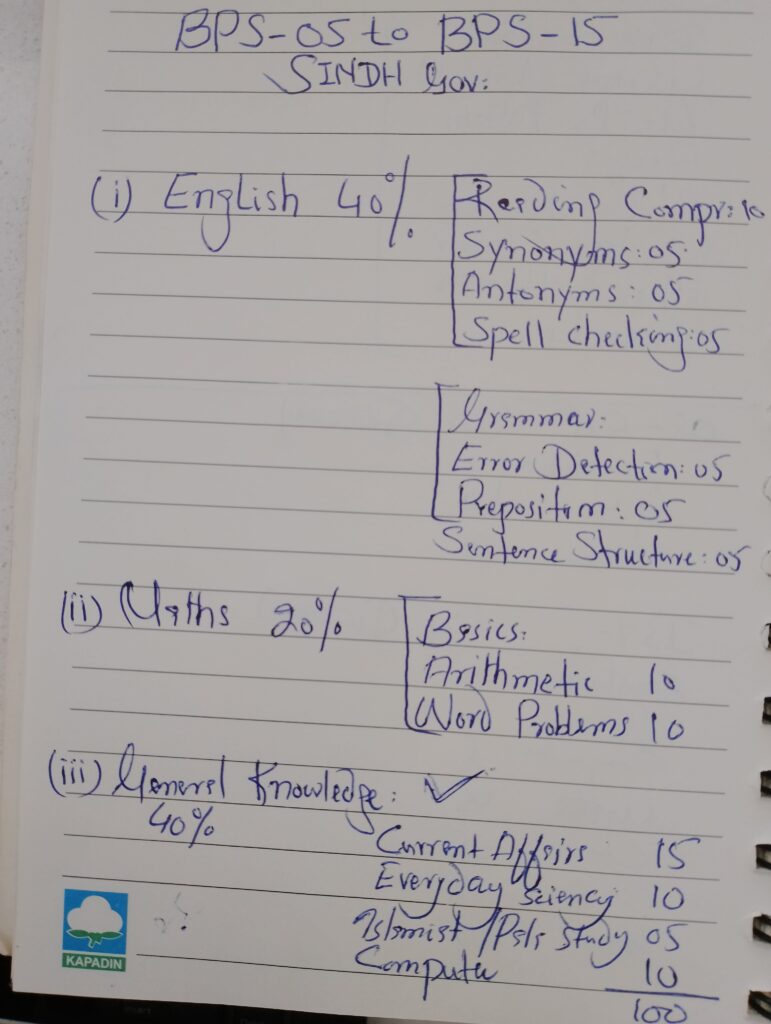 BPS-05 to BPS-15
SINDH Gov:
(i) English 40% Reading Compr: 10
Synonyms: 05
Antonyms: 05
Spell Checking: 05
Grammar:
Error Detection: 05
Preposition: 05
Sentence Structure: 05
(ii) Maths 20% Basics:
Arithmetic 10
Word Problems 10
(iii) General Knowledge:
40%
Current Affairs 15
Everyday Sciency 10
Islamist/Pak Study 05
Computer 10
100
KAPADIN